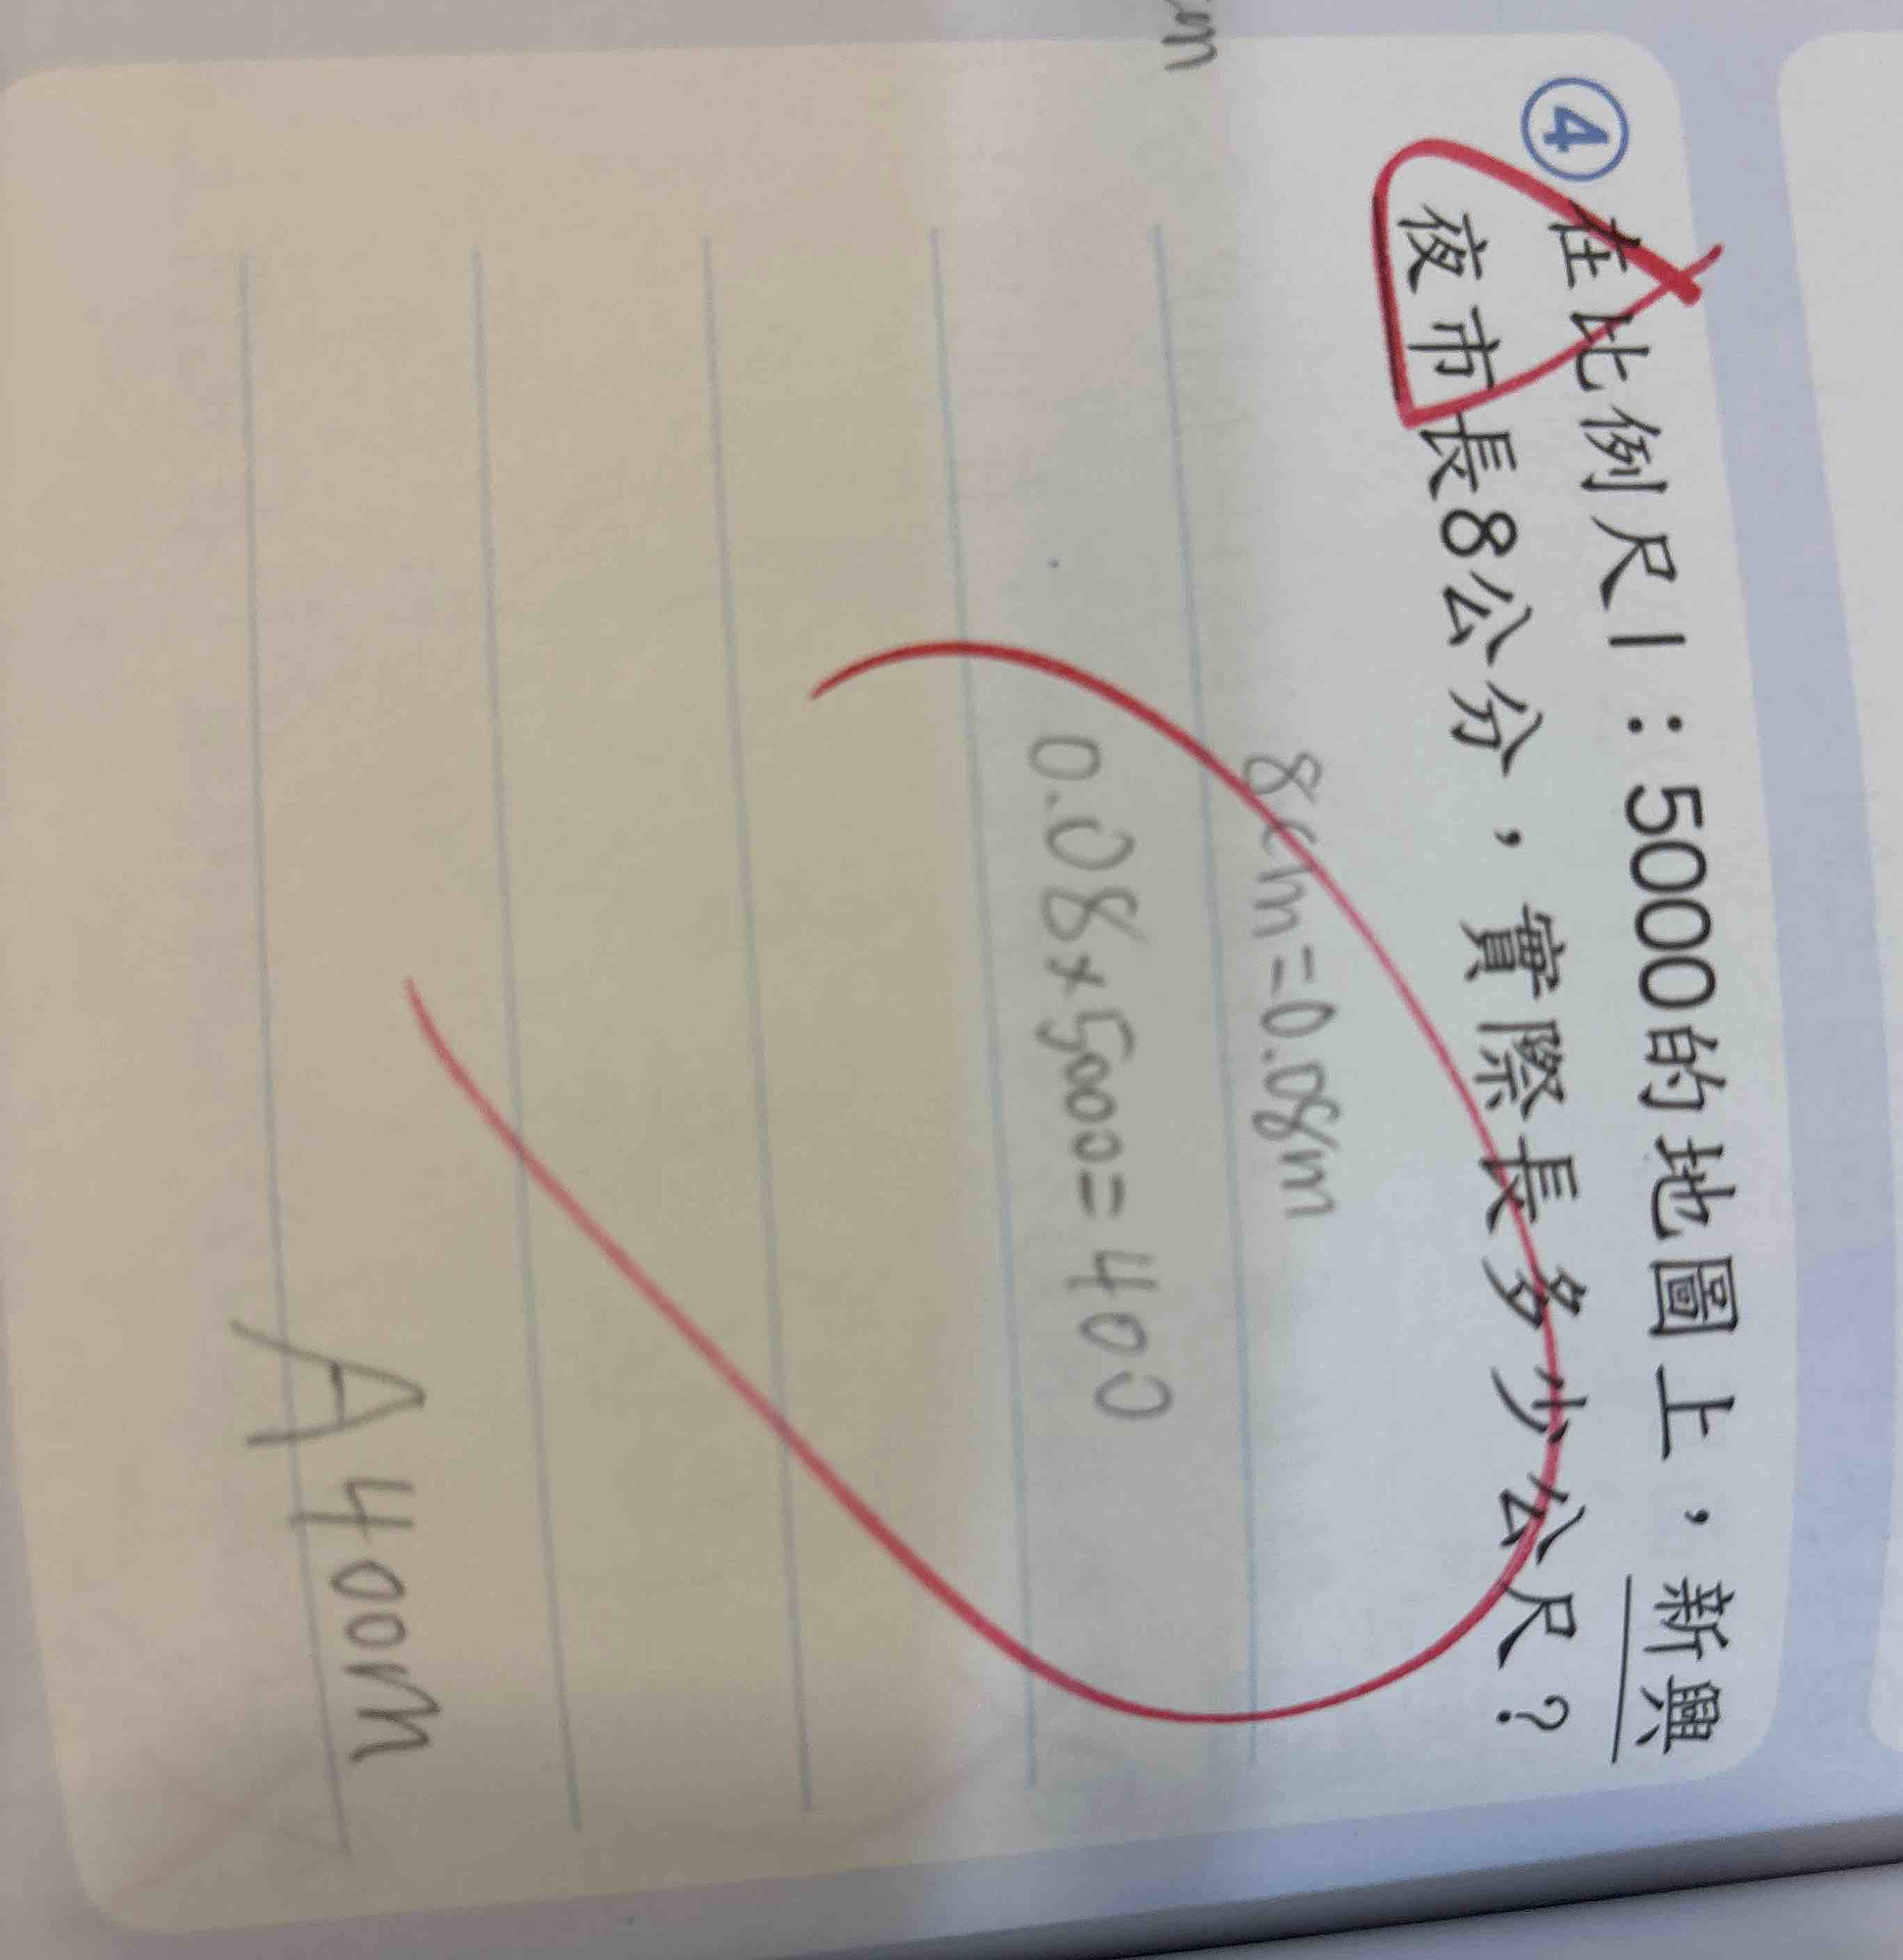 cm
④ 在比例尺1：5000的地圖上，新興
夜市長8公分，實際長多少公尺？
8cm=0.08m
0.08×5000=400
A400m